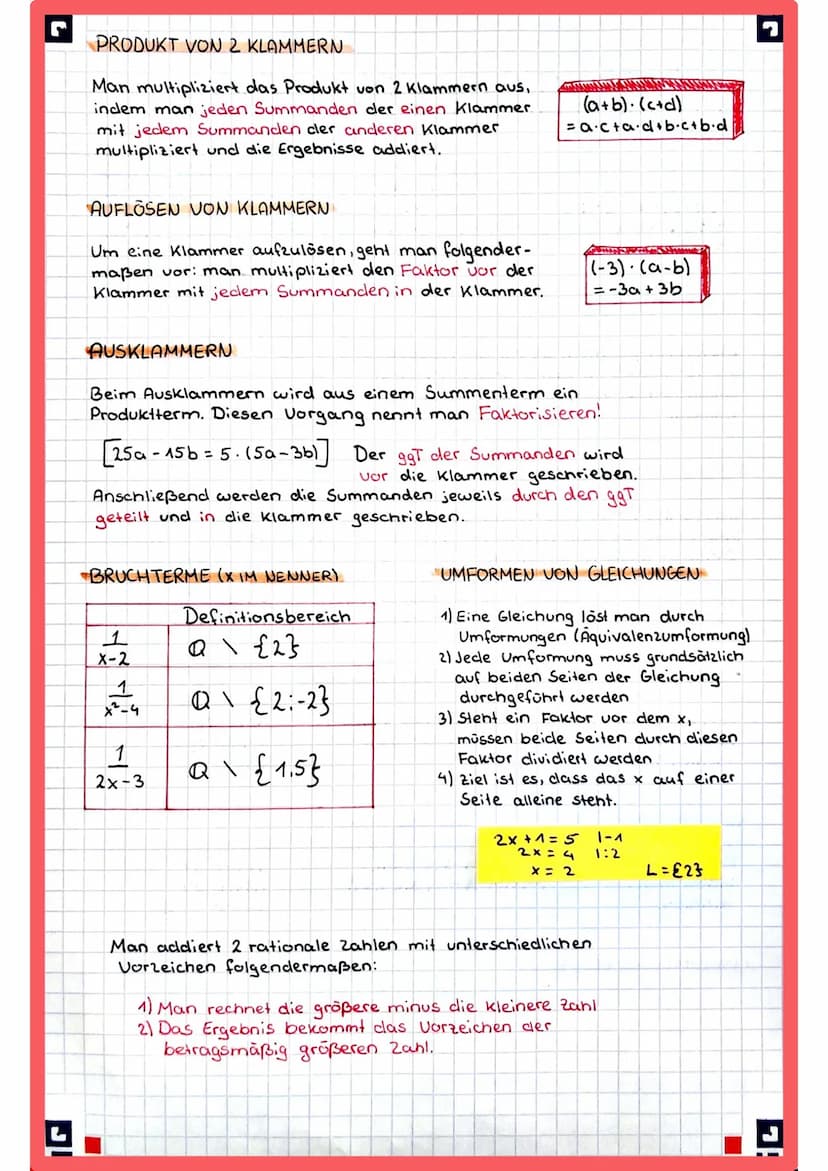 PRODUKT VON 2 KLAMMERN
Man multipliziert das Produkt von 2 Klammern aus,
indem man jeden Summanden der einen Klammer
mit jedem Summanden der anderen Klammer
multipliziert und die Ergebnisse addiert.
(a+b)·(c+d)
=a·c+a·d+b·c+b·d
AUFLÖSEN VON KLAMMERN
Um eine Klammer aufzulösen, geht man folgender-
maßen vor: man multipliziert den Faktor vor der
Klammer mit jedem Summanden in der Klammer.
(-3)·(a-b)
= -3a + 3b
AUSKLAMMERN
Beim Ausklammern wird aus einem Summenterm ein
Produktterm. Diesen Vorgang nennt man Faktorisieren!
[25a - 15b = 5·(5a-3b)] Der ggT der Summanden wird
vor die Klammer geschrieben.
Anschließend werden die Summanden jeweils durch den ggT
geteilt und in die Klammer geschrieben.
BRUCHTERME (X IM NENNER)
Definitionsbereich
1/x-2 Q \ {2}
1/x²-4 Q \ {2;-2}
1/2x-3 Q \ {1,5}
UMFORMEN VON GLEICHUNGEN
1) Eine Gleichung löst man durch
Umformungen (Äquivalenzumformung)
2) Jede Umformung muss grundsätzlich
auf beiden Seiten der Gleichung
durchgeführt werden
3) Steht ein Faktor vor dem x,
müssen beide Seiten durch diesen
Faktor dividiert werden.
4) Ziel ist es, dass das x auf einer
Seite alleine steht.
2x + 1 = 5 |-1
2x = 4 |:2
x = 2 L={2}
Man addiert 2 rationale Zahlen mit unterschiedlichen
Vorzeichen folgendermaßen:
1) Man rechnet die größere minus die kleinere Zahl
2) Das Ergebnis bekommt das Vorzeichen der
betragsmäßig größeren Zahl.